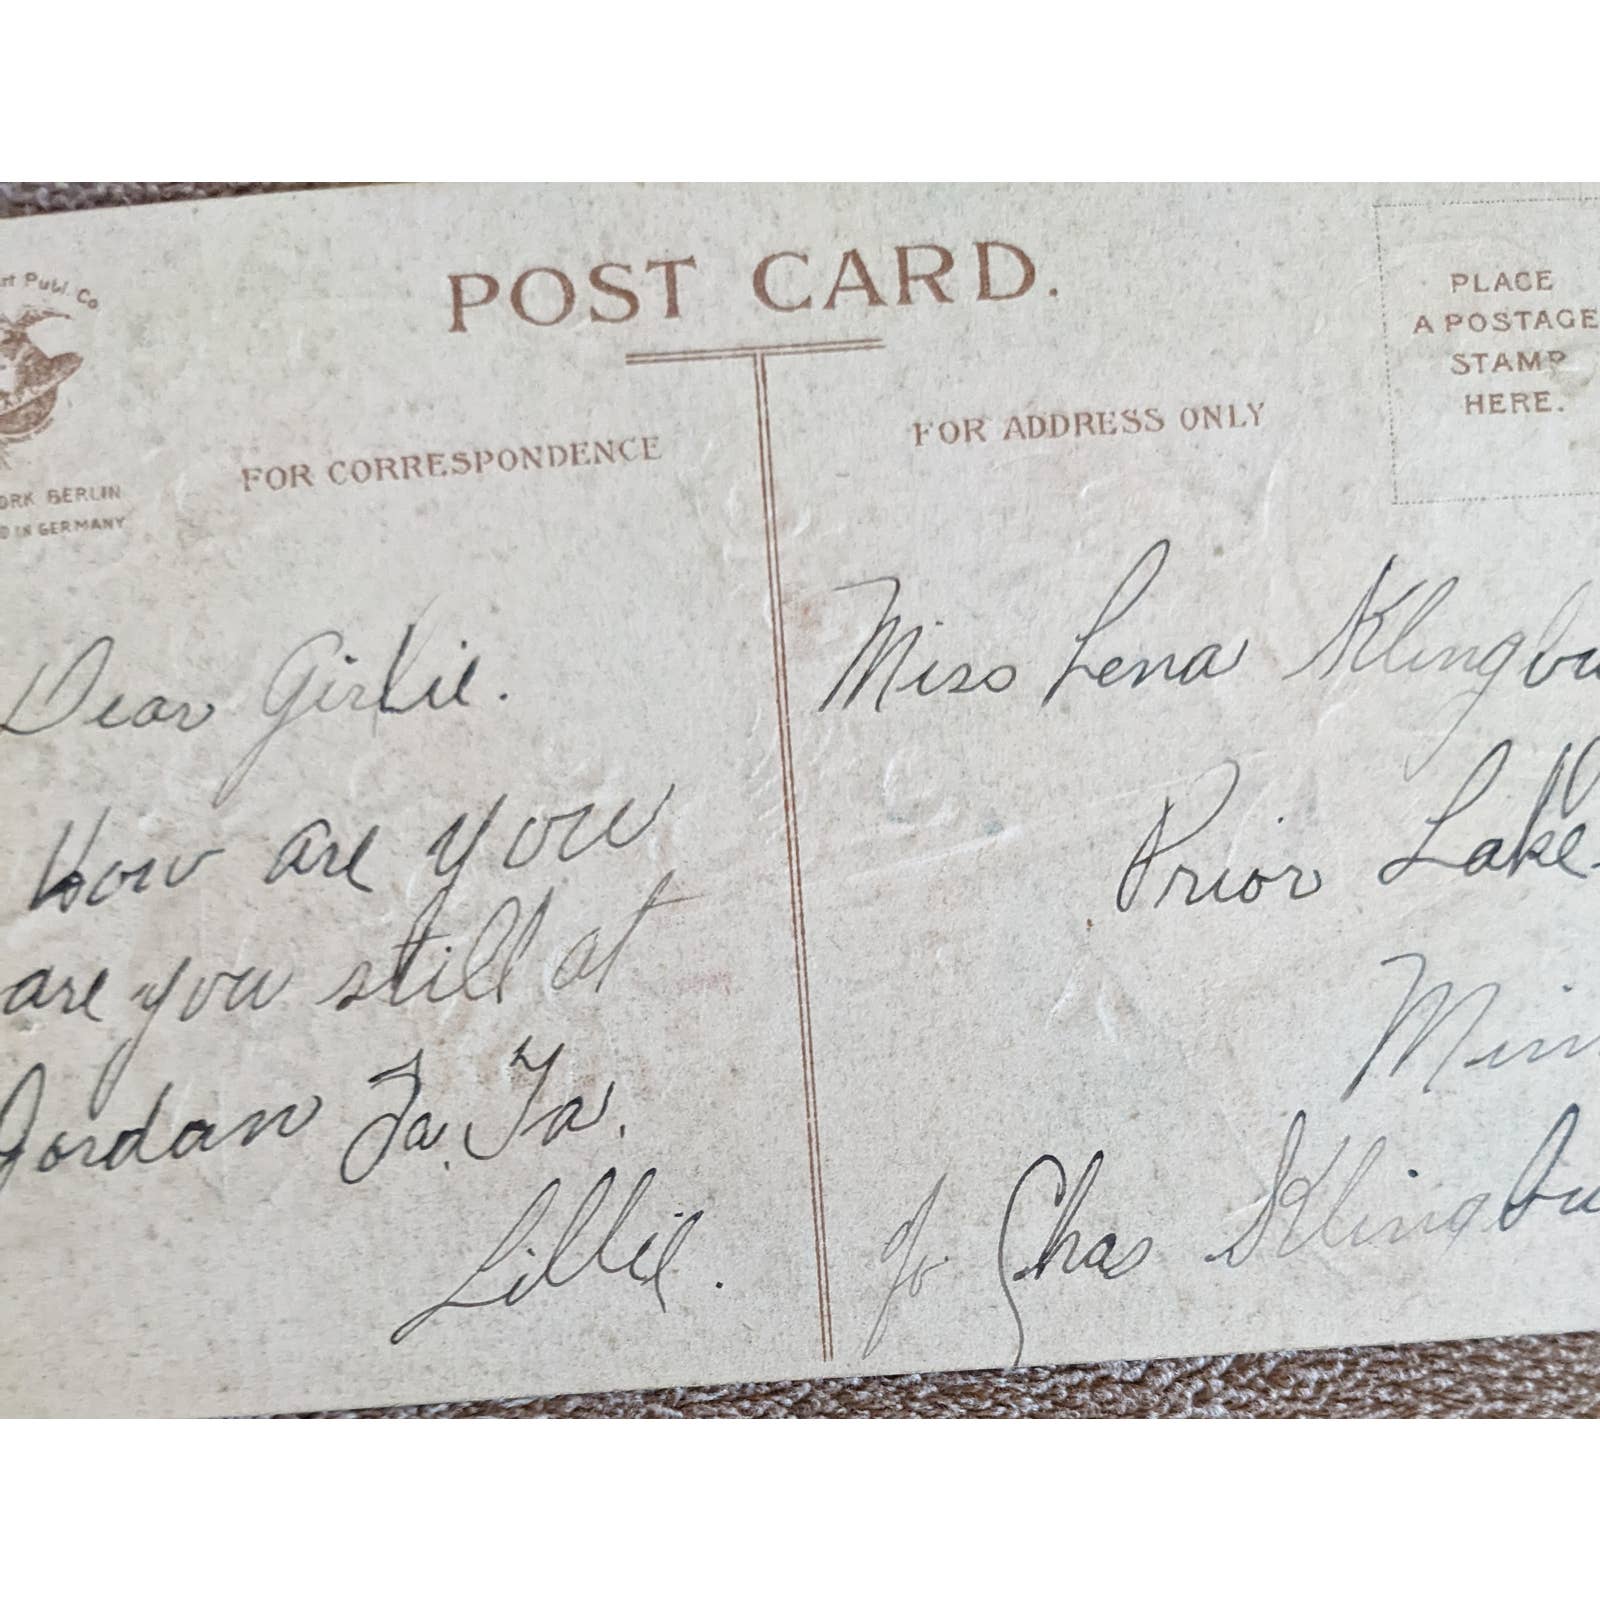 rt Publ. Co
ORK BERLIN
D IN GERMANY
POST CARD.
FOR CORRESPONDENCE
FOR ADDRESS ONLY
PLACE
A POSTAGE
STAMP
HERE.
Dear Girlie.
How are you
are you still at
Jordan Ta. Ta.
Lillie.
Miss Lena Klingbu
Prior Lake
Min
℅ Chas Klingbu